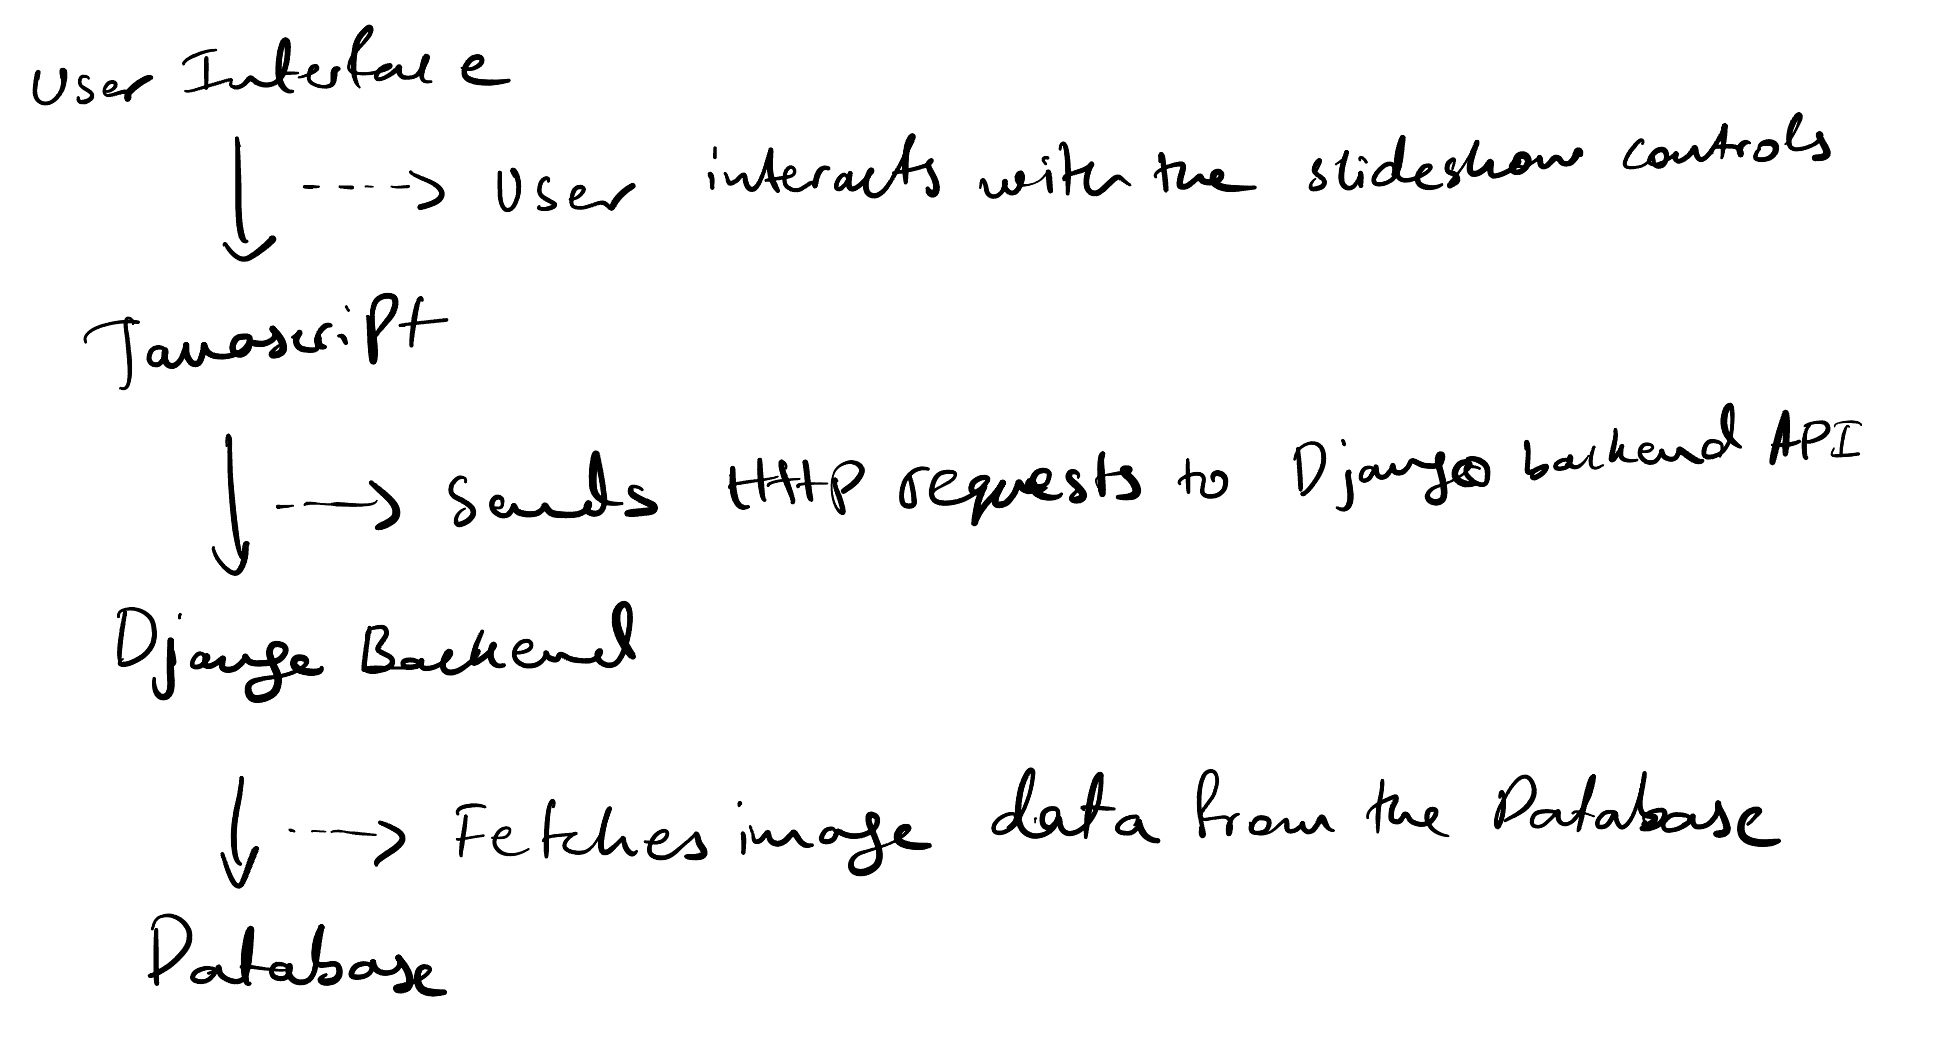 User Interface
User interacts with the slideshow controls
Javascript
Sends HTTP requests to Django backend API
Django Backend
Fetches image data from the Database
Database